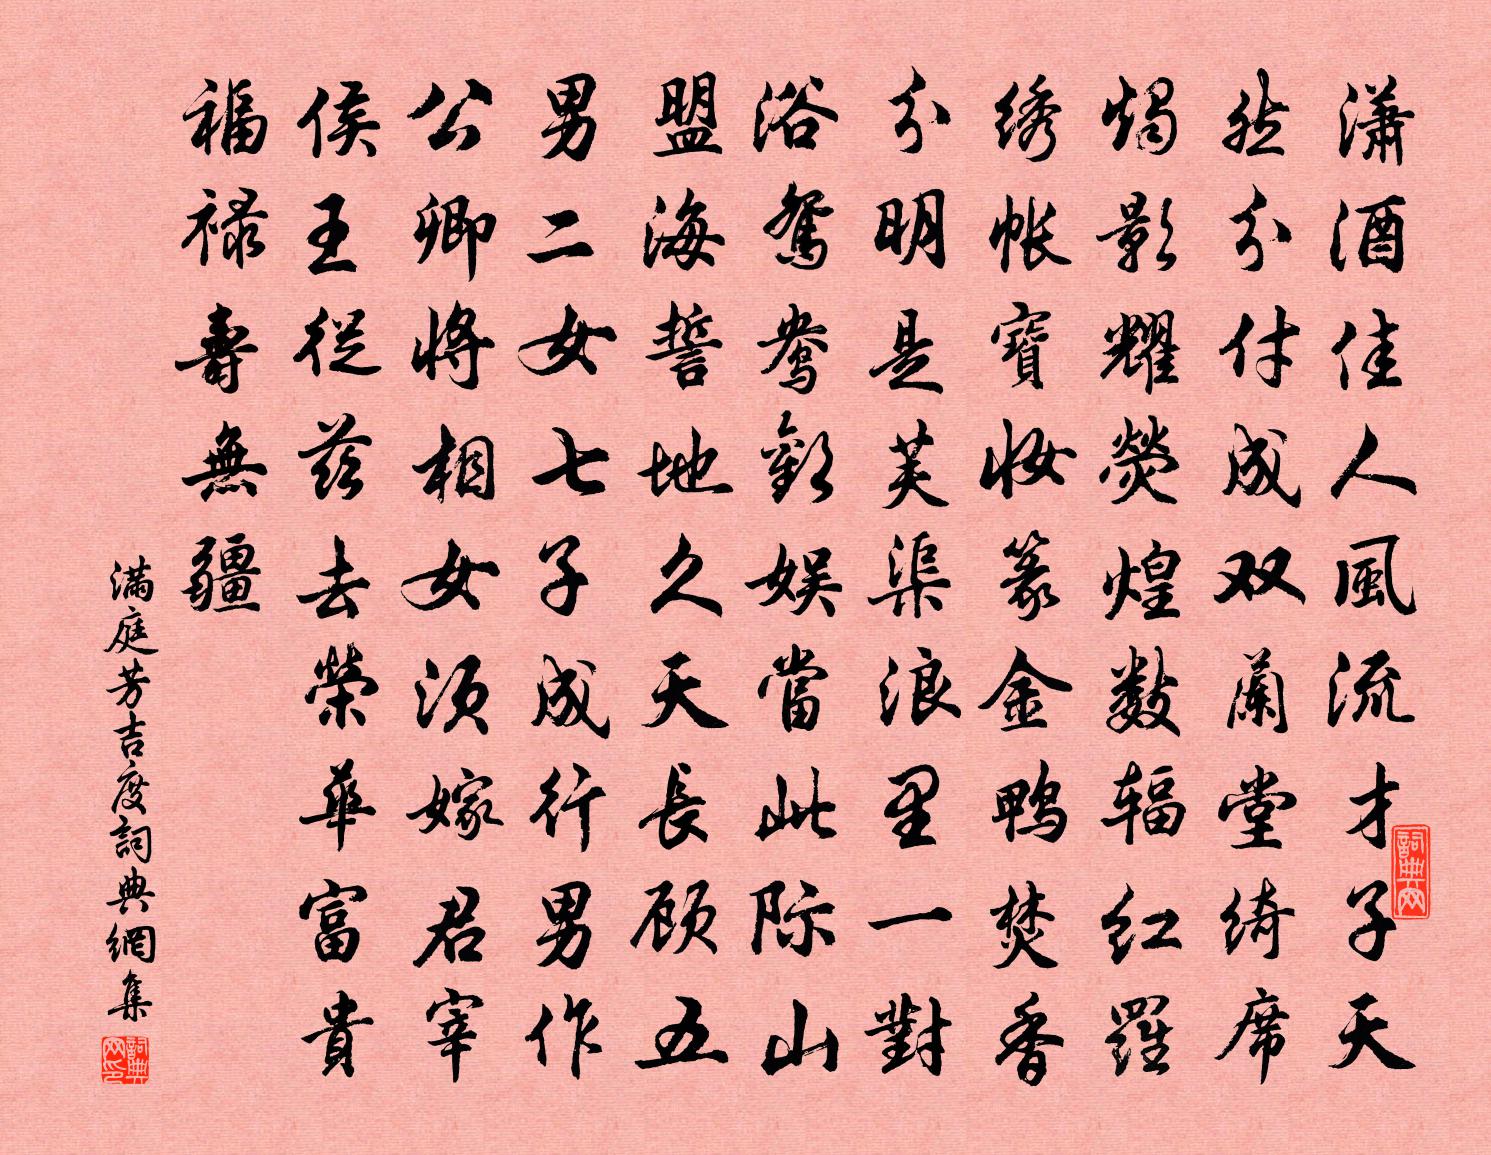 潇洒佳人風流才子天
然分付成双蘭堂绮席
燭影耀熒煌數辐红羅
绣帐寶妝篆金鸭焚香
分明是芙渠浪里一對
浴鴛鴦歡娱當此际山
盟海誓地久天長顾五
男二女七子成行男作
公卿將相女须嫁君宰
侯王從兹去榮華富貴
福禄壽無疆
满庭芳吉度詞典網集
詞典网
詞典网印